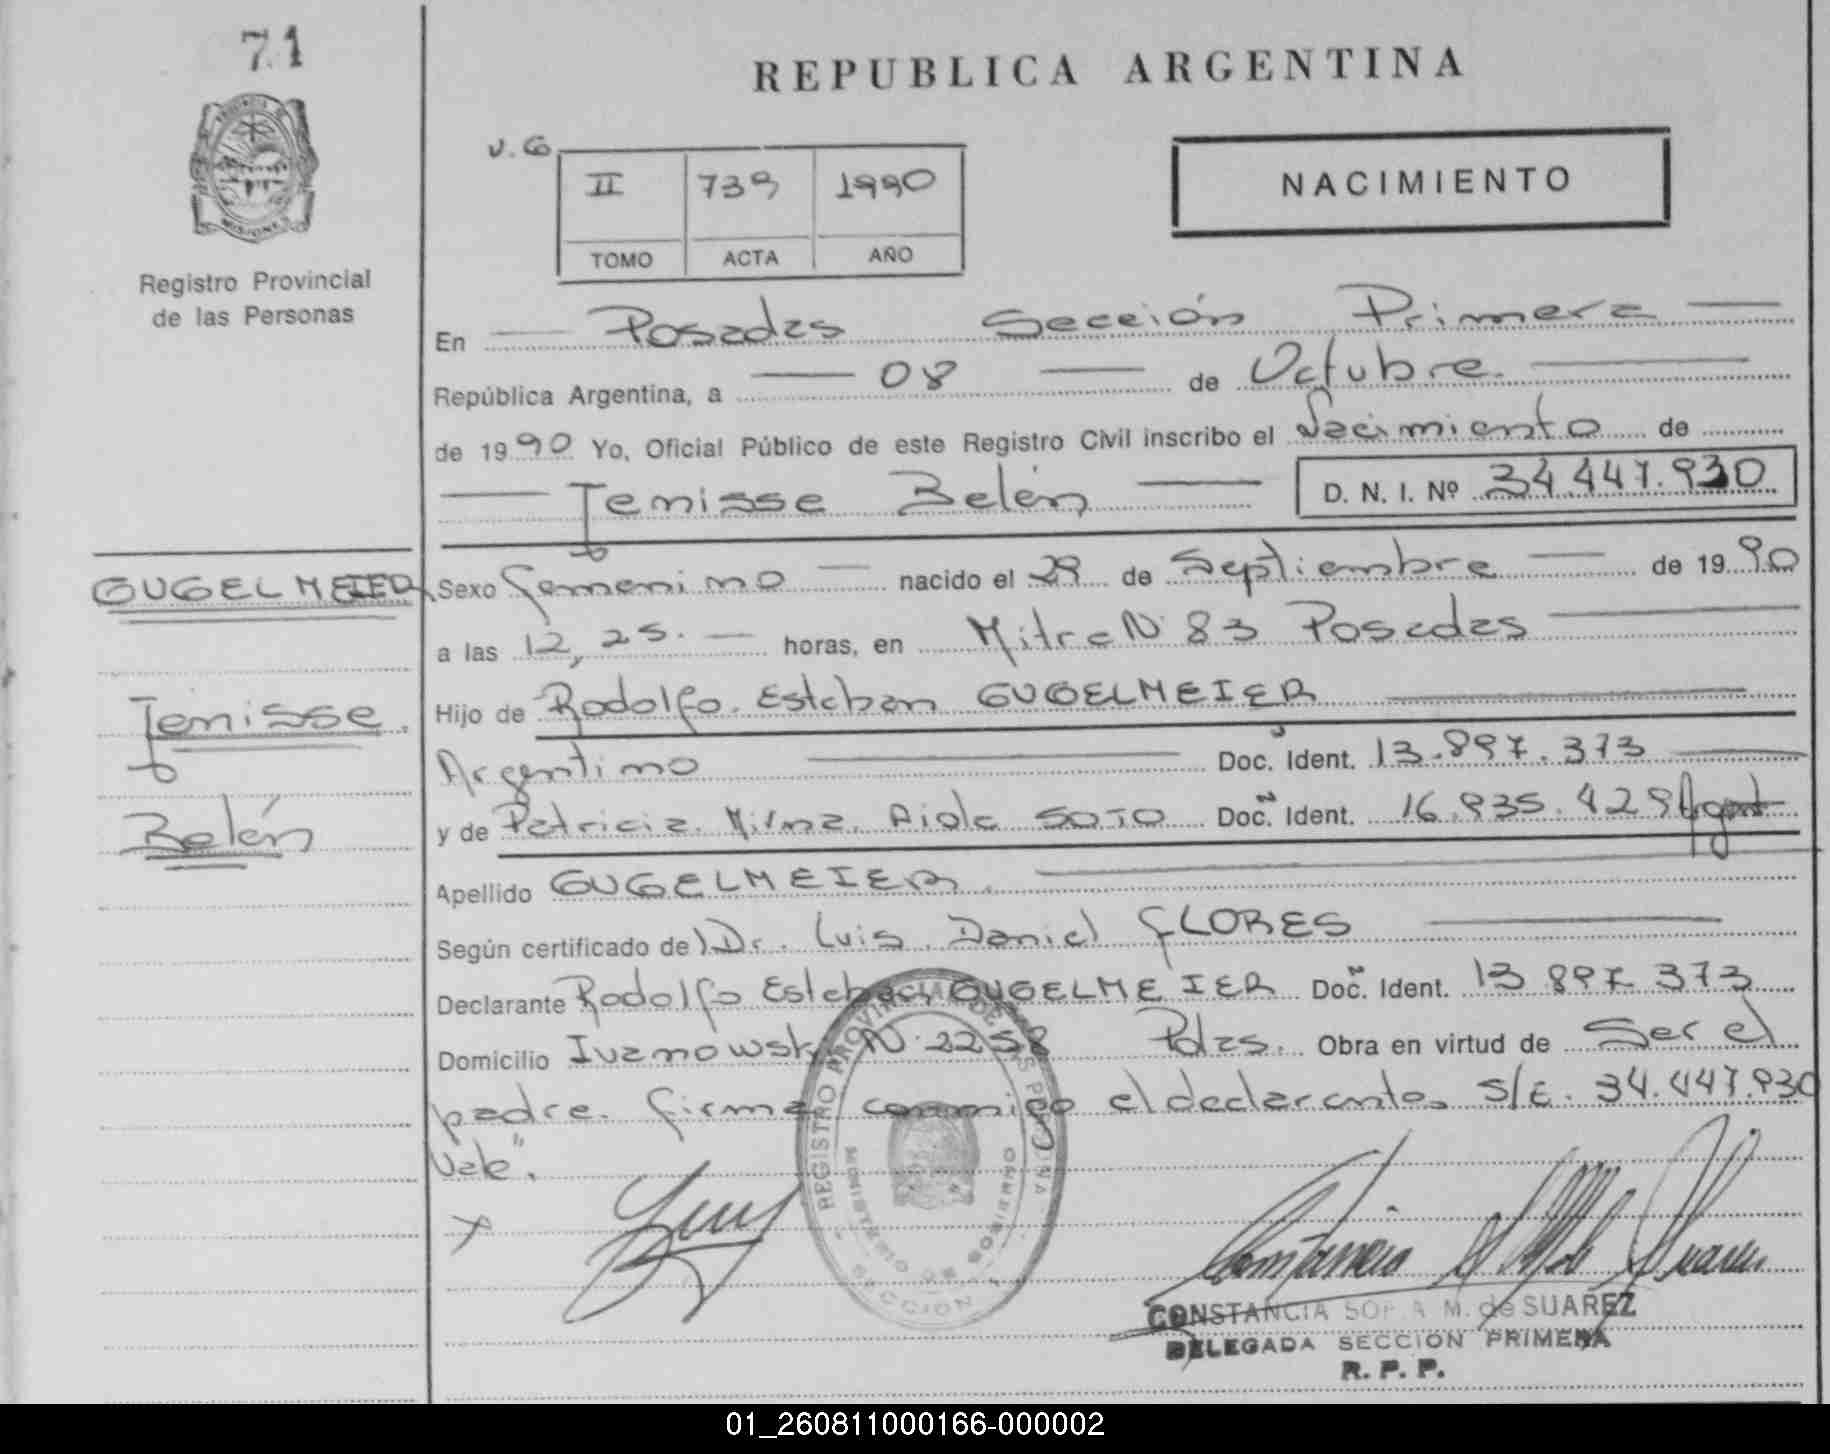 71
REPUBLICA ARGENTINA
II 739 1990
TOMO ACTA AÑO
NACIMIENTO
Registro Provincial
de las Personas
En Posadas Sección Primera
República Argentina, a 08 de Octubre.
de 1990 Yo, Oficial Público de este Registro Civil inscribo el Nacimiento de
Jenisse Belén D. N. I. Nº 34.447.930
GUGELMEIER
Jenisse.
Belén
Sexo femenino nacido el 29 de Septiembre de 1990
a las 12,25. horas, en Mitre N 83 Posadas
Hijo de Rodolfo Esteban GUGELMEIER
Argentino Doc. Ident. 13.897.373
y de Patricia Mirna SOTO Doc. Ident. 16.935.429 Argent
Apellido GUGELMEIER.
Según certificado de Dr. Luis Daniel FLORES
Declarante Rodolfo Esteban GUGELMEIER Doc. Ident. 13 897 373
Domicilio Ivanowski N 2258 Pdas. Obra en virtud de Ser el
padre. firma conmigo el declarante. S/E. 34.447.930
Vale".
REGISTRO PROVINCIAL DE LAS PERSONAS
MINISTERIO DE GOBIERNO
SECCION 1
MISIONES
CONSTANCIA SOFIA M. de SUAREZ
DELEGADA SECCION PRIMERA
R. P. P.
01_260811000166-000002